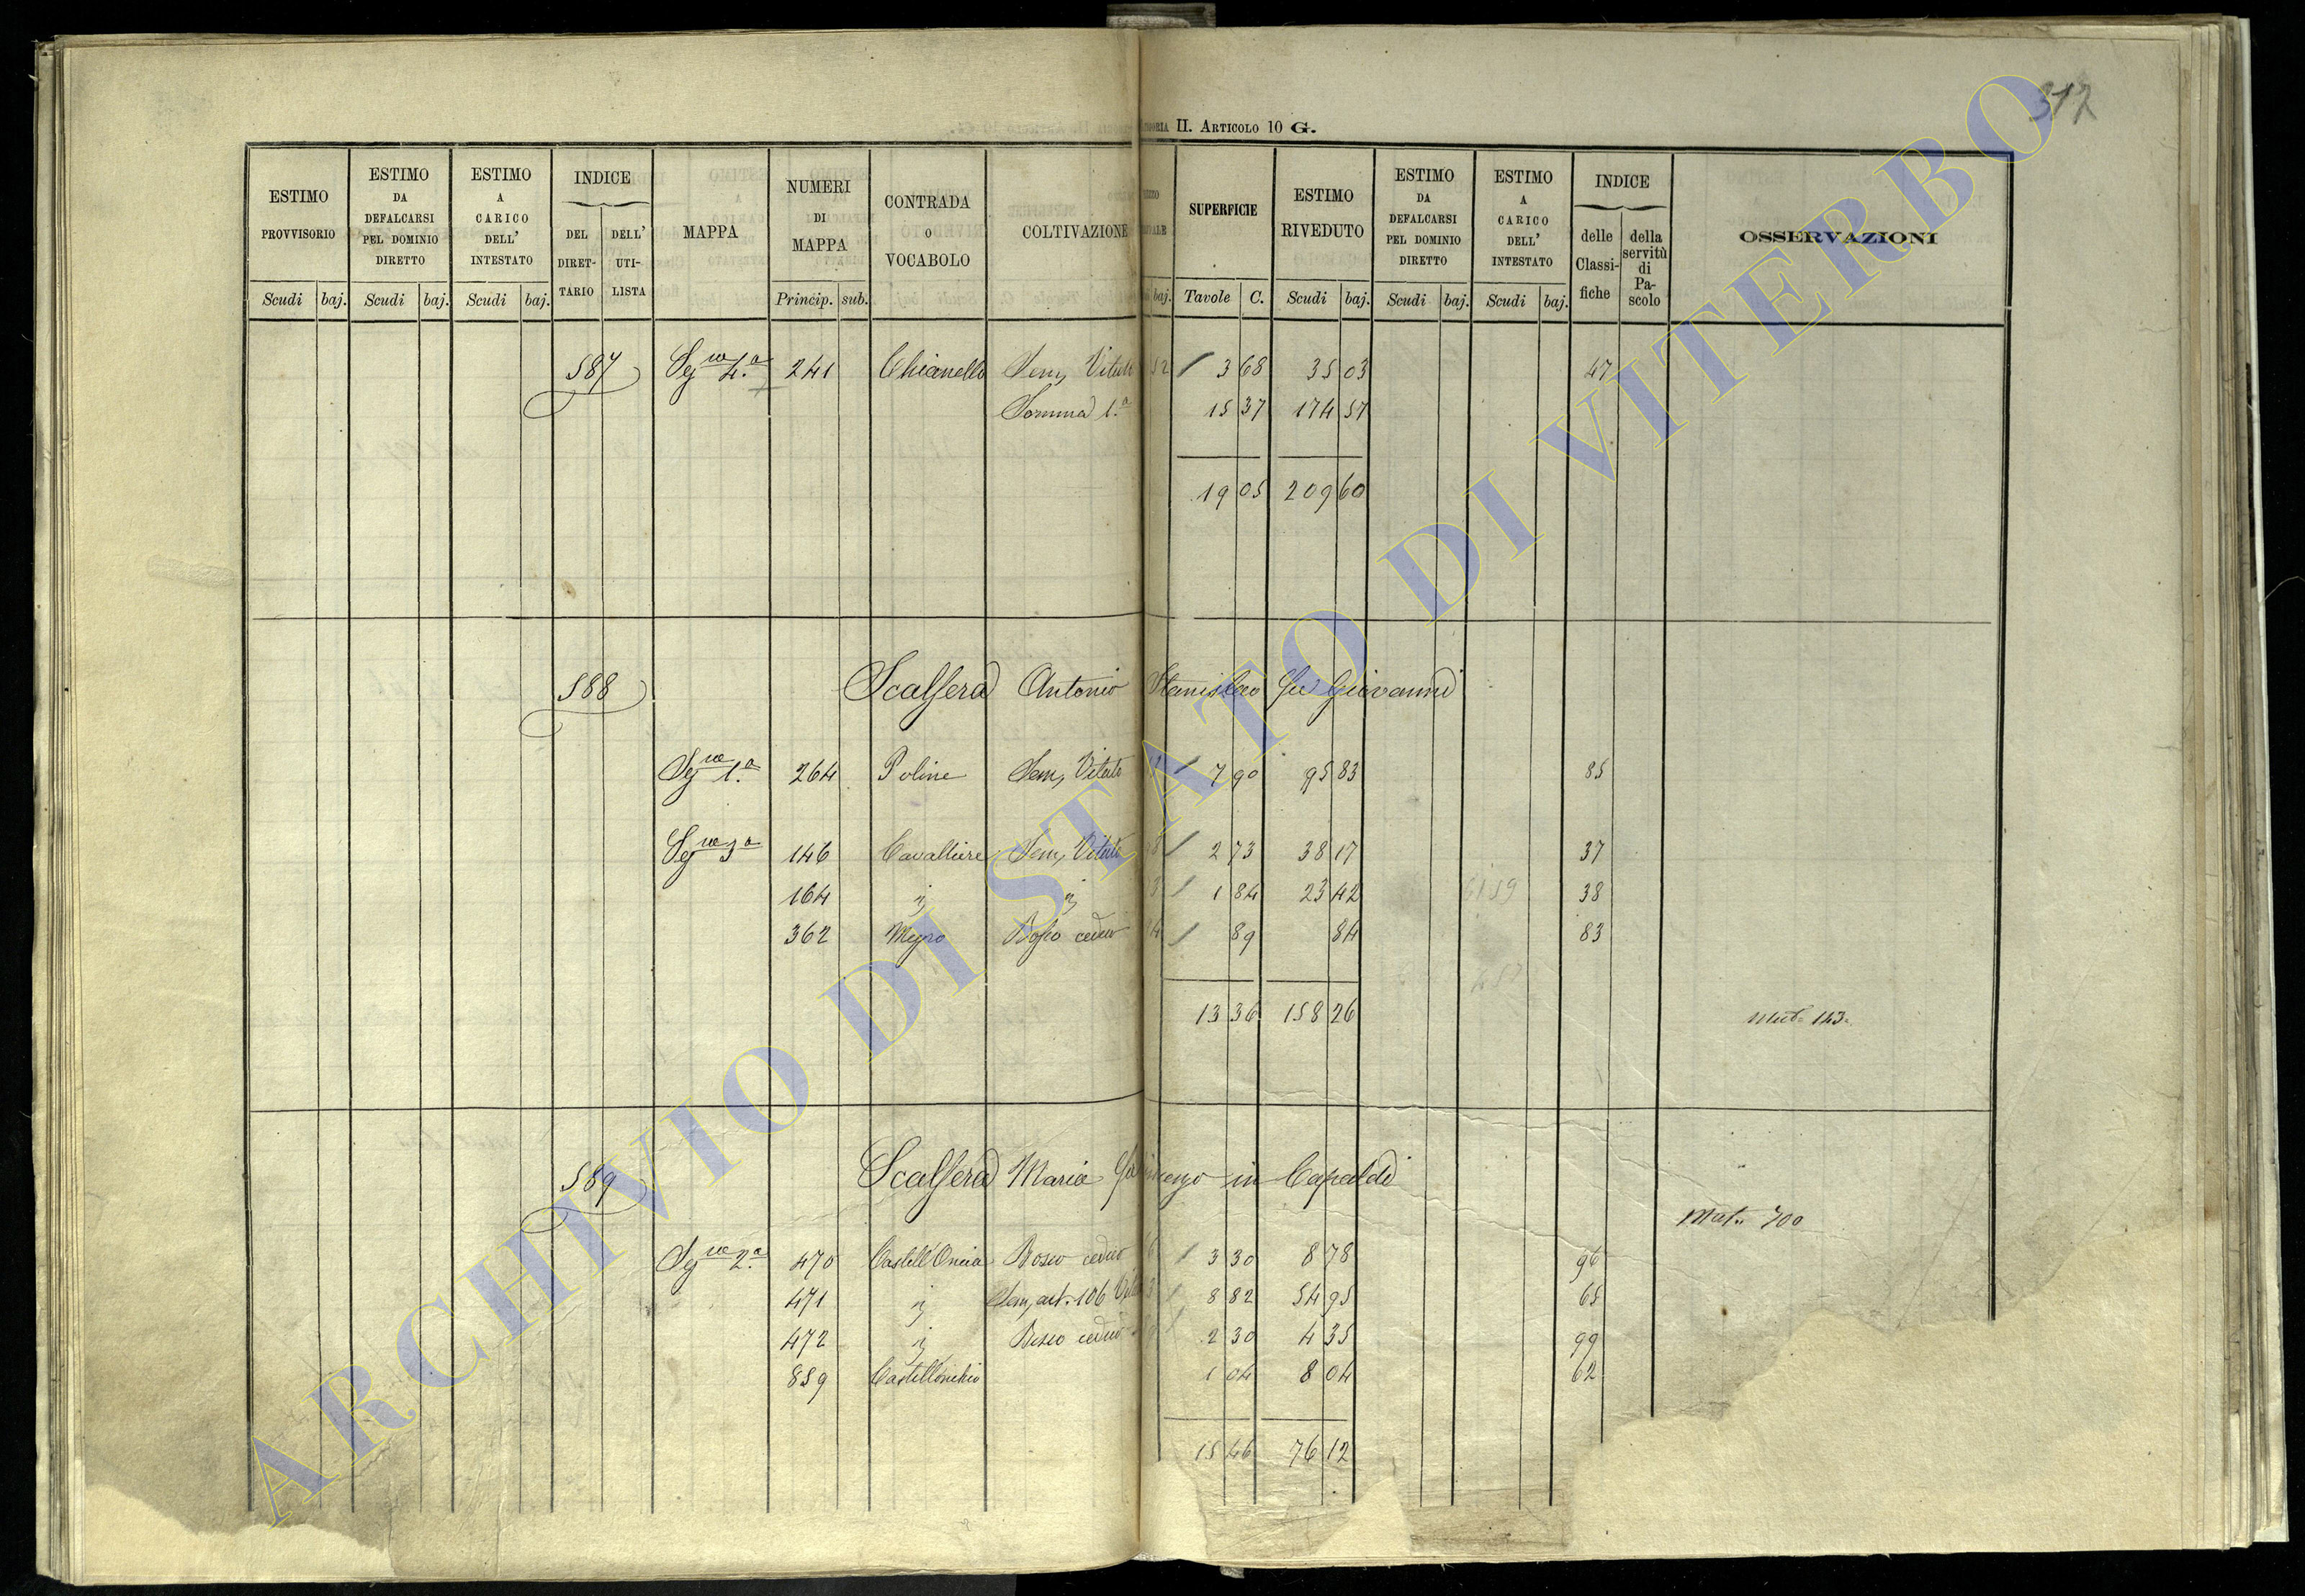 312
II. Articolo 10 G.
ESTIMO PROVVISORIO
ESTIMO DA DEFALCARSI PEL DOMINIO DIRETTO
ESTIMO A CARICO DELL' INTESTATO
INDICE
DEL DIRETTARIO
DELL' UTILISTA
MAPPA
NUMERI DI MAPPA
CONTRADA O VOCABOLO
COLTIVAZIONE
SUPERFICIE
ESTIMO RIVEDUTO
ESTIMO DA DEFALCARSI PEL DOMINIO DIRETTO
ESTIMO A CARICO DELL' INTESTATO
INDICE
delle Classifiche
della servitù di Pascolo
OSSERVAZIONI
Scudi baj. Scudi baj. Scudi baj. Princip. sub. baj. Tavole C. Scudi baj. Scudi baj. Scudi baj.
587 Segne 4.a 241 Chianello Sem, Vitato 52 3 68 35 03 47
Somma 1.a 15 37 174 57
19 05 209 60
588 Scalsera Antonio Stanislao fu Giovanni
Segne 1.a 264 Poline Sem, Vitato 7 90 95 83 85
Segne 3a 146 Cavalliere Sem, Vitato 2 73 38 17 37
164 " " 1 84 23 42 38
362 Bosco ceduo 89 84 83
13 36 158 26 Mut= 143=
589 Scalsera Maria in Capaldi
Mat.. 700
Segne 2.a 470 Castell'Oncia Bosco ceduo 3 30 8 78 96
471 " Sem, art. 106 8 82 54 95 65
472 " Bosco ceduo 2 30 4 35 99
859 1 04 8 04 62
15 46 76 12
ARCHIVIO DI STATO DI VITERBO